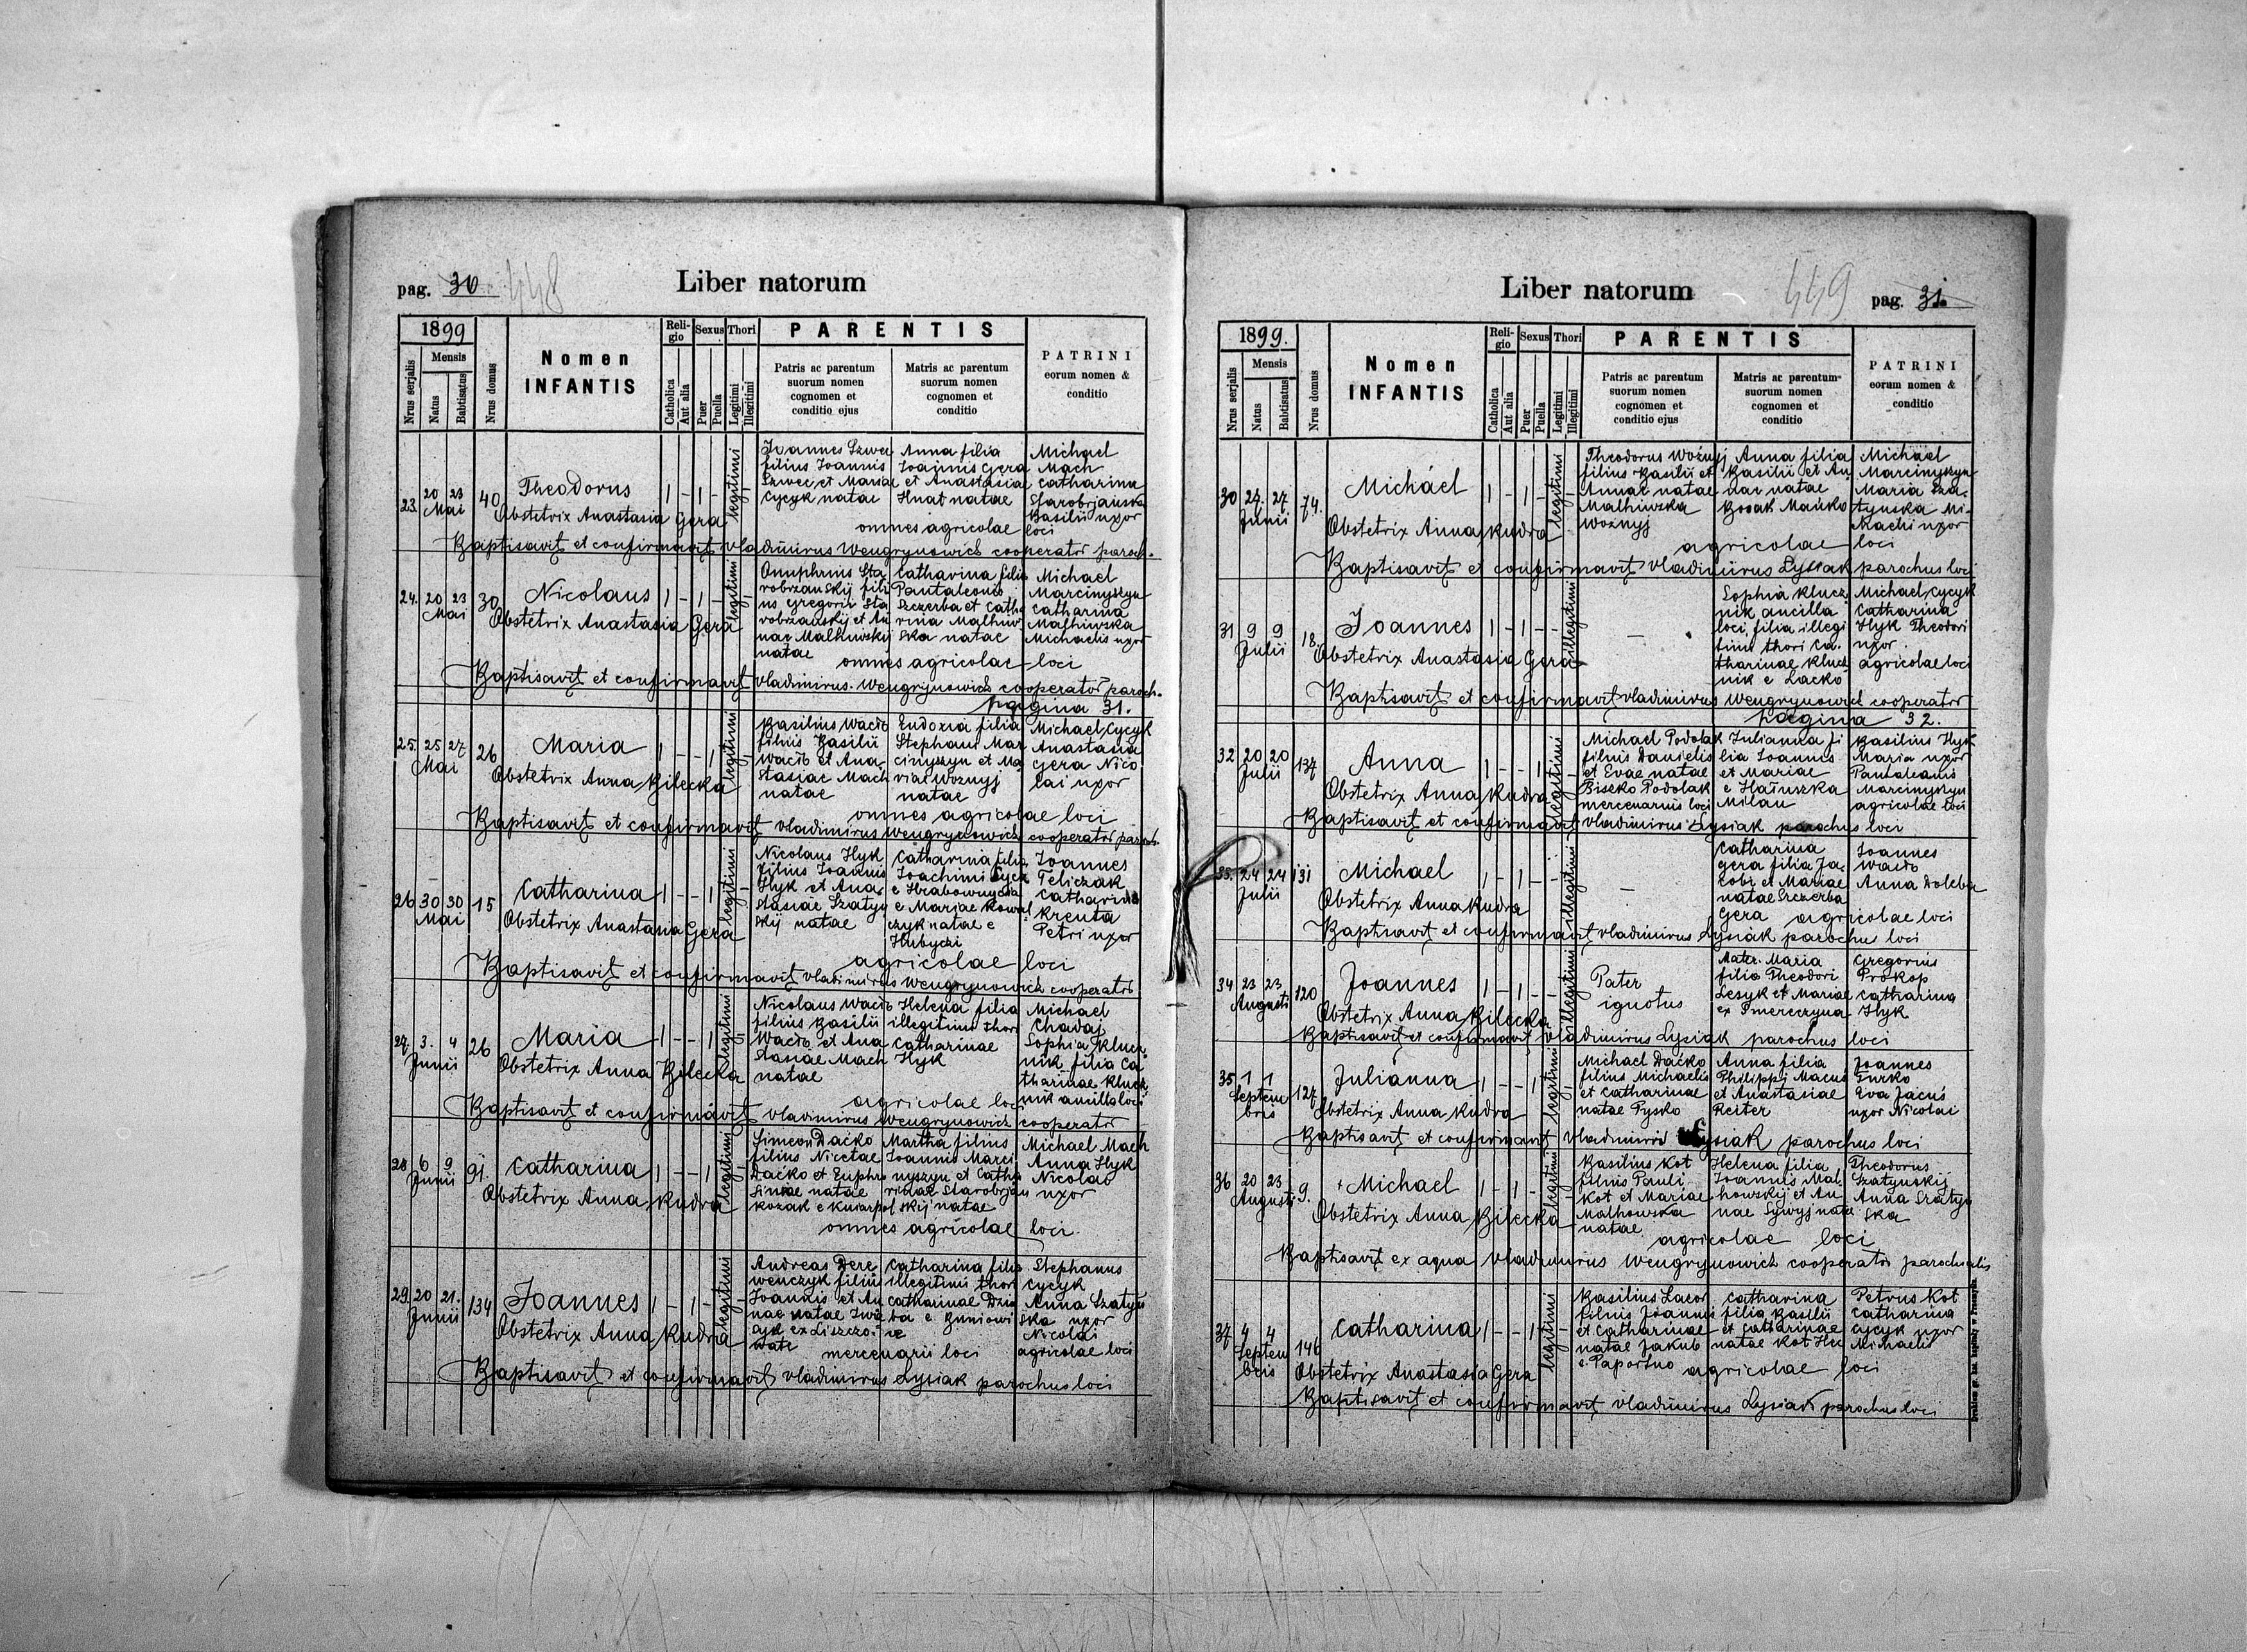 pag. 30 448 Liber natorum
1899
Nrus serjalis
Mensis
Natus
Babtisatus
Nrus domus
Nomen
INFANTIS
Religio
Catholica
Aut alia
Sexus
Puer
Puella
Thori
Legitimi
Illegitimi
PARENTIS
Patris ac parentum
suorum nomen
cognomen et
conditio ejus
Matris ac parentum
suorum nomen
cognomen et
conditio
PATRINI
eorum nomen &
conditio
23. 20 23 Mai 40
Theodorus 1 - 1 - legitimi
Obstetrix Anastasia Gera
Joannes Szwec
filius Joannis
Szwec et Mariae
Cycyk natae
Anna filia
Joannis Gera
et Anastasiae
Hnat natae
Michael
Mach
Catharina
Starobrzanska
Basilii uxor
omnes agricolae loci
Baptisavit et confirmavit Vladimirus Wengrynowich cooperator paroch.
24. 20 23 Mai 30
Nicolaus 1 - 1 - legitimi
Obstetrix Anastasia Gera
Onuphrius Sta
robrzanskij fili
us Gregorii Sta
robrzanskij et An
nae Malhiwskij
natae
Catharina filia
Pantaleonis
Szczerba et Catha
rina Malhiw
ska natae
Michael
Marcinyszyn
Catharina
Malhiwska
Michaelis uxor
omnes agricolae loci
Baptisavit et confirmavit Vladimirus Wengrynowich cooperator paroch.
pagina 31.
25. 25 27 Mai 26
Maria 1 - - 1 legitimi
Obstetrix Anna Bilecka
Basilius Wacio
filius Basilii
Wacio et Ana
stasiae Mach
natae
Eudoxia filia
Stephani Mar
cinyszyn et Ma
riae Woznyj
natae
Michael Cycyk
Anastasia
Gera Nico
lai uxor
omnes agricolae loci
Baptisavit et confirmavit Vladimirus Wengrynowich cooperator paroch.
26 30 30 Mai 15
Catharina 1 - - 1 legitimi
Obstetrix Anastasia Gera
Nicolaus Hyk
filius Joannis
Hyk et Ana
stasiae Szatyn
skij natae
Catharina filia
Joachimi
e Mariae Kowal
czyk natae e
Joannes
Teliczak
Catharina
Krenta
Petri uxor
agricolae loci
Baptisavit et confirmavit Vladimirus Wengrynowich cooperator
27. 3. 4 Junii 26
Maria 1 - - 1 legitimi
Obstetrix Anna Bilecka
Nicolaus Wacio
filius Basilii
Wacio et Ana
stasiae Mach
natae
Helena filia
illegitimi thori
Catharinae
Hyk
Michael
Chadaj
Sophia Klucz
nik filia Ca
tharinae Klucz
nik ancilla loci
agricolae loci
Baptisavit et confirmavit Vladimirus Wengrynowich cooperator
28 6 9 Junii 91.
Catharina 1 - - 1 legitimi
Obstetrix Anna Kudra
Simeon Dacko
filius Nicetae
Dacko et Euphro
sinae natae
Kozak e
Martha filius
Joannis Marci
nyszyn et Catha
rinae Starobrzan
skij natae
Michael Mach
Anna Hyk
Nicolao
uxor
omnes agricolae loci.
29. 20 21. Junii 134
Joannes 1 - 1 - legitimi
Obstetrix Anna Kudra
Andreas Dere
wenczyk filius
Joannis et An
nae natae
Catharina filia
illegitimi thori
Catharinae
Stephanus
Cycyk
Anna Szatyn
ska uxor
Nicolai
agricolae loci
mercenarii loci
Baptisavit et confirmavit Vladimirus Lysiak parochus loci
Liber natorum 449 pag. 31.
1899.
Nrus serjalis
Mensis
Natus
Babtisatus
Nrus domus
Nomen
INFANTIS
Religio
Catholica
Aut alia
Sexus
Puer
Puella
Thori
Legitimi
Illegitimi
PARENTIS
Patris ac parentum
suorum nomen
cognomen et
conditio ejus
Matris ac parentum
suorum nomen
cognomen et
conditio
PATRINI
eorum nomen &
conditio
30 24. 27. Junii 74.
Michael 1 - 1 - legitimi
Obstetrix Anna Kudra
Theodorus Woznyj
filius Basilii et
Annae natae
Malhiwska
Woznyj
Anna filia
Basilii et An
nae natae
Bosak Mańko
Michael
Marcinyszyn
Maria Sza-
tynska Mi-
chaeli uxor
agricolae loci
Baptisavit et confirmavit Vladimirus Lysiak parochus loci
31 9 9 Julii 18.
Joannes 1 - 1 - illegitimi
Obstetrix Anastasia Gera
Sophia Klucz
nik ancilla
loci, filia illegi
timi thori Ca-
tharinae Klucz
nik e Lacko
Michael Cycyk
Catharina
Hyk Theodori
uxor.
agricolae loci
Baptisavit et confirmavit Vladimirus Wengrynowich cooperator
pagina 32.
32 20 20 Julii 137
Anna 1 - - 1 legitimi
Obstetrix Anna Kudra
Michael Podolak
filius Danielis
et Evae natae
Bisko Podolak
mercenarius loci
Julianna fi
lia Joannes
et Mariae
e
Milan
Basilius Hyk
Maria uxor
Pantaleonis
Marcinyszyn
agricolae loci
Baptisavit et confirmavit Vladimirus Lysiak parochus loci
33. 24 24 Julii 131
Michael 1 - 1 - illegitimi
Obstetrix Anna Kudra
Catharina
Gera filia Ja
cobi et Mariae
natae Szczerba
Gera
Joannes
Wacio
Anna Doleba
agricolae loci
Baptisavit et confirmavit Vladimirus Lysiak parochu loci
34 23 23 Augusti 120
Joannes 1 - 1 - illegitimi
Obstetrix Anna Bilecka
Pater
ignotus
Mater. Maria
filia Theodori
Lesyk et Mariae
ex Smereczyna
Gregorius
Prokop
Catharina
Hyk
Baptisavit et confirmavit Vladimirus Lysiak parochus loci
35 1 1 Septembris 127
Julianna 1 - - 1 legitimi
Obstetrix Anna Kudra
Michael Dacko
filius Michaelis
et Catharinae
natae Pysko
Anna filia
Philippi Macuś
et Anastasiae
Reiter
Joannes
Turko
Eva Jacuś
uxor Nicolai
Baptisavit et confirmavit Vladimirus Lysiak parochus loci
36 20 23 Augusti 9.
+ Michael 1 - 1 - legitimi
Obstetrix Anna Bilecka
Basilius Kot
filius Pauli
Kot et Mariae
Malhowska
natae
Helena filia
Joannis Mal
howskij et An
nae Sywyj natae
Theodorus
Szatynskij
Anna Szatyn
ska
agricolae loci
Baptisavit ex aqua Vladimirus Wengrynowich cooperator parochialis
37 4 4 Septembris 146
Catharina 1 - - 1 legitimi
Obstetrix Anastasia Gera
Basilius Lacor
filius Joannis
et Catharinae
natae Jakub
e Paportno
Catharina
filia Basilii
et Catharinae
natae Kot
Petrus Kot
Catharina
Cycyk uxor
Michaelis
agricolae loci
Baptisavit et confirmavit Vladimirus Lysiak parochus loci